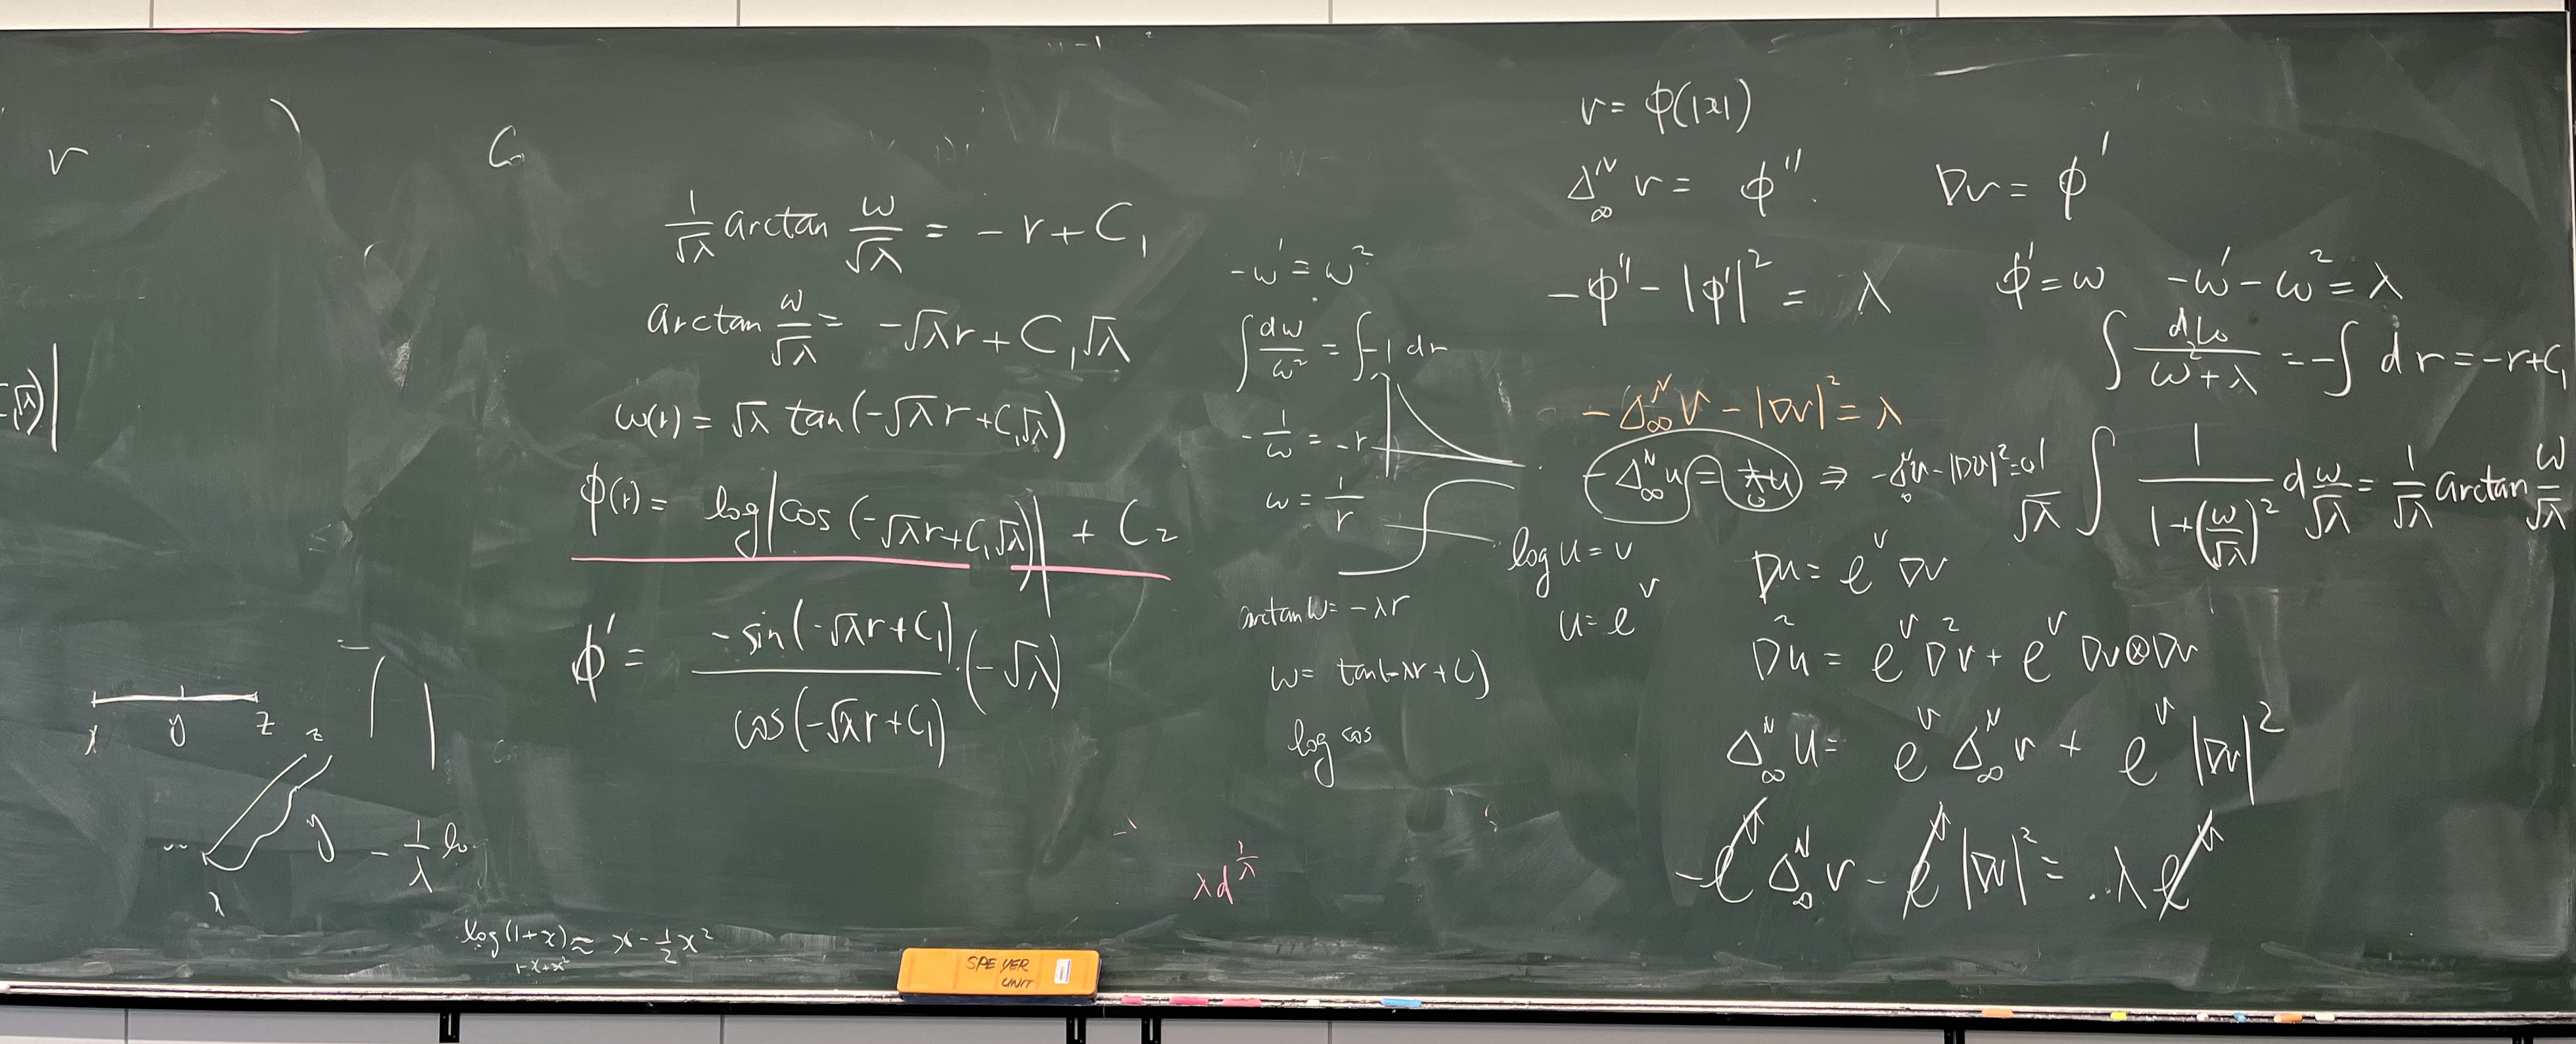 v
C₁√λ)|
C₁
1/√λ arctan ω/√λ = -r + C₁
arctan ω/√λ = -√λr + C₁√λ
ω(r) = √λ tan(-√λr + C₁√λ)
φ(r) = log|cos(-√λr + C₁√λ)| + C₂
φ' = -sin(-√λr + C₁)/cos(-√λr + C₁) · (-√λ)
x y z
z
y
x
- 1/λ lo
log(1+x) ≈ x - 1/2 x²
1-x+x²
-ω' = ω²
∫ dω/ω² = ∫ -1 dr
- 1/ω = -r
ω = 1/r
arctan ω = -λr
ω = tan(-λr + C)
log cos
λd^(1/λ)
v = φ(|x|)
Δ_∞^N v = φ'' ∇v = φ'
-φ'' - |φ'|² = λ φ' = ω -ω' - ω² = λ
∫ dω/(ω² + λ) = -∫ dr = -r + C₁
-Δ_∞^N v - |∇v|² = λ
-Δ_∞^N u = λu ⇒ -Δ_∞^N v - |Dv|² = 0
1/√λ ∫ 1/(1 + (ω/√λ)²) d ω/√λ = 1/√λ arctan ω/√λ
log u = v
u = e^v
Du = e^v ∇v
D²u = e^v D²v + e^v Dv⊗Dv
Δ_∞^N u = e^v Δ_∞^N v + e^v |Dv|²
-e^v Δ_∞^N v - e^v |Dv|² = λ e^v
SPEYER
UNIT